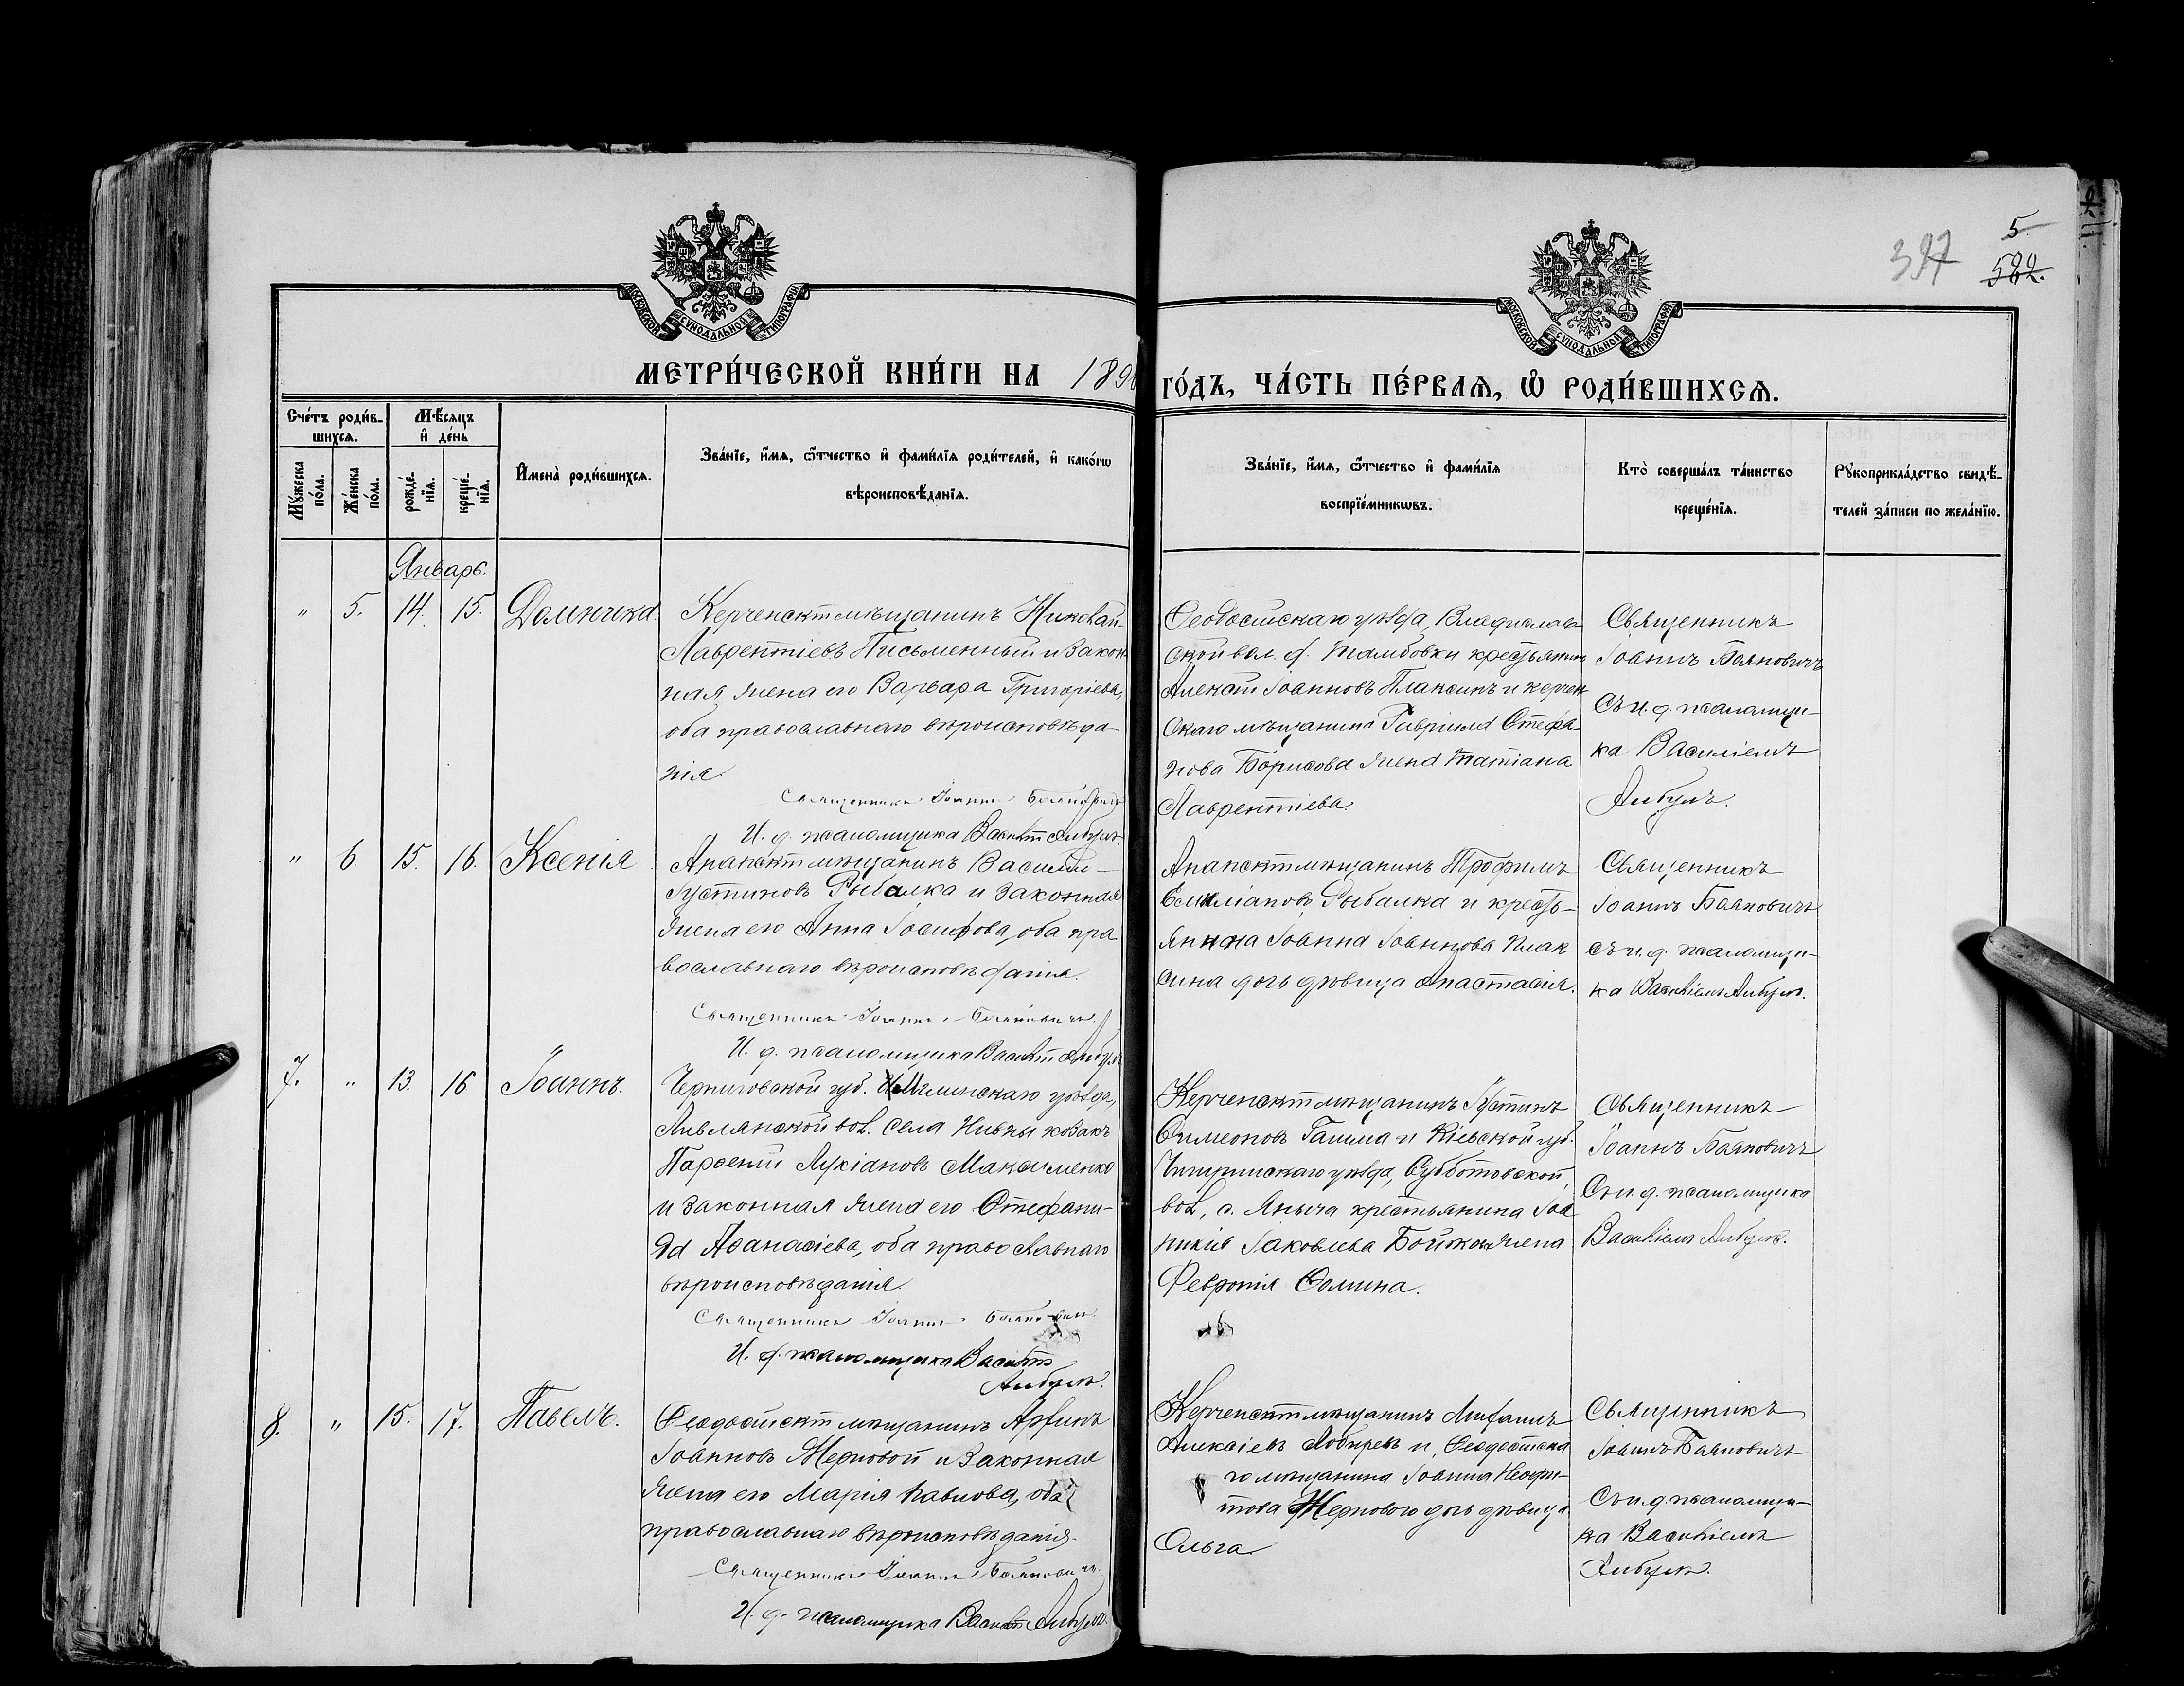 5.
582.
397
2
МОСКОВСКОЙ СѴНОДАЛЬНОЙ ТИПОГРАФІИ
МОСКОВСКОЙ СѴНОДАЛЬНОЙ ТИПОГРАФІИ
МЕТРИ́ЧЕСКОЙ КНИ́ГИ НА 189
ГО́ДЪ, ЧА́СТЬ ПЕ́РВАѦ, Ѽ РОДИ́ВШИХСѦ.
Сче́тъ роди́в-
шихсѧ.
Мѣ́сѧцъ
и҆ де́нь
Мꙋ́жеска по́ла.
Же́нска по́ла.
рожде́-нїѧ.
креще́-нїѧ.
И҆мена̀ роди́вшихсѧ.
Зва́нїе, и҆́мѧ, ѻ҆́тчество и҆ фами́лїѧ роди́телей, и҆ како́гѡ
вѣроисповѣ́данїѧ.
Зва́нїе, и҆́мѧ, ѻ҆́тчество и҆ фами́лїѧ
воспрїе́мникѡвъ.
Кто̀ соверша́лъ та́инство
креще́нїѧ.
Рꙋкоприкла́дство свидѣ́-
телей за́писи по жела́нїю.
Январь.
" 5. 14. 15. Домника.
Керченскій мѣщанинъ Николай
Лаврентіевъ Письменный и закон
ная жена его Варвара Григоріева,
оба православнаго вѣроисповѣда-
нія.
Священникъ Іоаннъ Баяновичъ
И. д. псаломщика Василій
Ѳеодосійскаго уѣзда, Владислав
ской вол. д. Тамбовки крестьянинъ
Алексѣй Іоанновъ Плаксинъ и керчен
скаго мѣщанина Гавріила Стефа-
нова Борисова жена Татіана
Лаврентіева.
Священникъ
Іоаннъ Баяновичъ
съ и. д. псаломщи-
ка Василіемъ
" 6. 15. 16. Ксенія
Анапскій мѣщанинъ Василій
Іустиновъ Рыбалка и законная
жена его Анна Іосифова, оба пра
вославнаго вѣроисповѣданія.
Священникъ Іоаннъ Баяновичъ.
И. д. псаломщика Василій
Анапскій мѣщанинъ Трофимъ
Емиліановъ Рыбалка и кресть-
янина Іоанна Іоаннова Плак
сина дочь дѣвица Анастасія.
Священникъ
Іоаннъ Баяновичъ
съ и. д. псаломщи-
ка Василіемъ
7. " 13. 16 Іоаннъ.
Черниговской губ. уѣзда,
вол. села Нивны козакъ
Парѳеній Лукіановъ Максименко
и законная жена его Стефани-
да Аѳанасіева, оба православнаго
вѣроисповѣданія.
Священникъ Іоаннъ Баяновичъ.
И. д. псаломщика Василій
Керченскій мѣщанинъ Іустинъ
Симеоновъ и Кіевской губ.
Чигиринскаго уѣзда, Субботовской
вол., с. Яныча крестьянина Іоа
никія Іаковлева Бойко жена
Февронія Ѳомина.
Священникъ
Іоаннъ Баяновичъ
съ и. д. псаломщика
Василіемъ
8. " 15. 17. Павелъ.
Ѳеодосійскій мѣщанинъ
Іоанновъ Жерновой и законная
жена его Марія Павлова, оба
православнаго вѣроисповѣданія.
Священникъ Іоаннъ Баяновичъ.
И. д. псаломщика Василій
Керченскій мѣщанинъ
Алексіевъ и Ѳеодосійска
го мѣщанина Іоанна Неофи-
това Жернового дочь дѣвица
Ольга.
Священникъ
Іоаннъ Баяновичъ
съ и. д. псаломщи-
ка Василіемъ